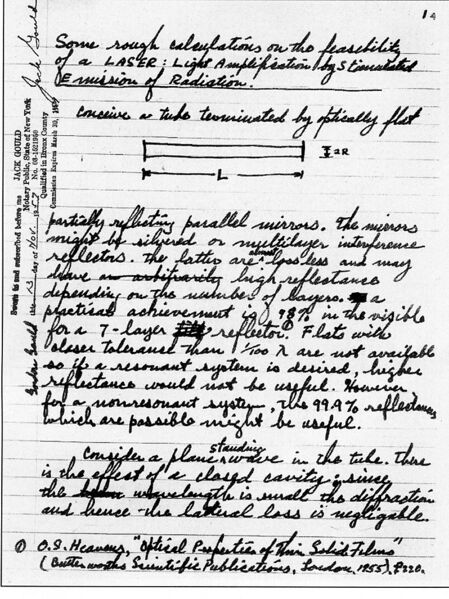 1 a
Some rough calculations on the feasibility
of a LASER: Light Amplification by Stimulated
Emission of Radiation.
Conceive a tube terminated by optically flat
2R
L
partially reflecting parallel mirrors. The mirrors
might be silvered or multilayer interference
reflectors. The latter are almost lossless and may
have an arbitrarily high reflectance
depending on the number of layers. a
practical achievement is 98% in the visible
for a 7-layer reflector.① Flats with
closer tolerance than 1/100 λ are not available
so if a resonant system is desired, higher
reflectance would not be useful. However
for a nonresonant system, the 99.9% reflectances
which are possible might be useful.
Consider a plane standing wave in the tube. There
is the effect of a closed cavity; since
the wavelength is small the diffraction
and hence the lateral loss is negligable.
① O.S. Heavens, "Optical Properties of Thin Solid Films"
(Butterworths Scientific Publications, London, 1955), P220.
Gordon Gould
Sworn to and subscribed before me
this 13 day of Nov. 1957
JACK GOULD
Notary Public, State of New York
Qualified in Bronx County
Jack Gould